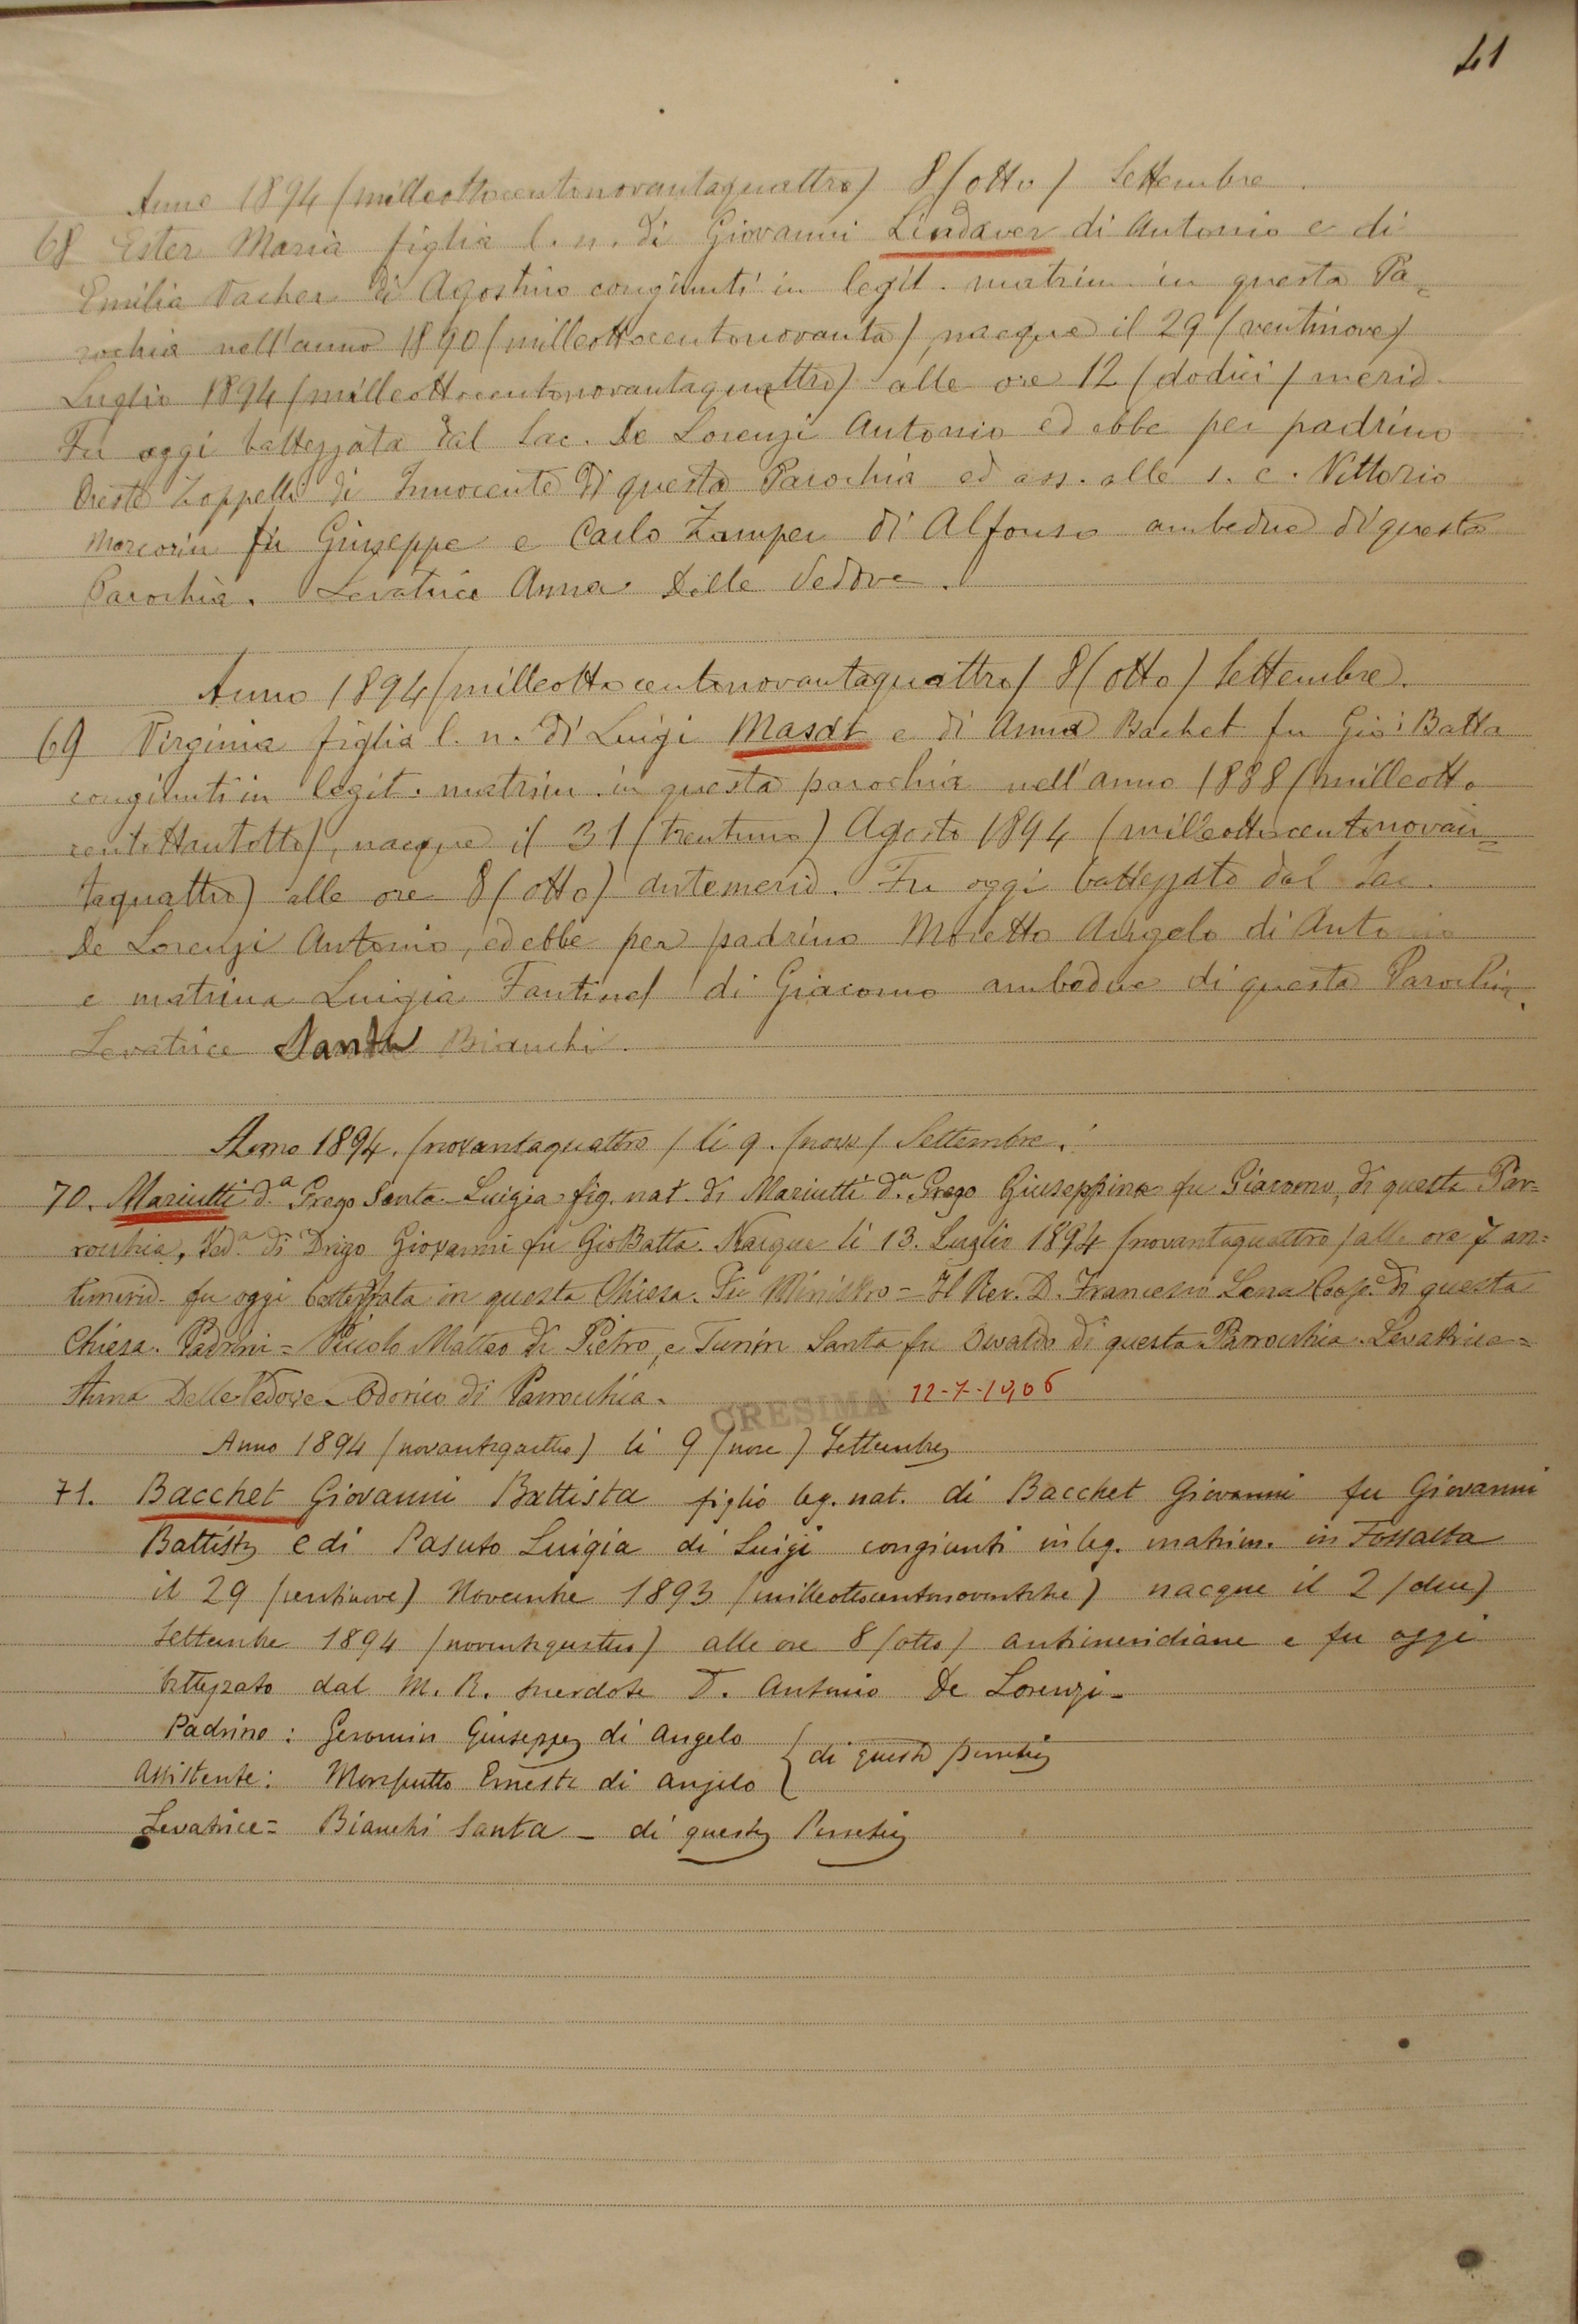 41
Anno 1894 (milleottocentonovantaquattro) 8 (otto) Settembre.
68 Ester Maria figlia l. n. di Giovanni Lindaver di Antonio e di
Emilia Vacher di Agostino congiunti in legit. matrim. in questa Pa=
rochia nell'anno 1890 (milleottocentonovanta), nacque il 29 (ventinove)
Luglio 1894 (milleottocentonovantaquattro) alle ore 12 (dodici) merid.
Fu oggi battezzata dal Sac. De Lorenzi Antonio ed ebbe per padrino
Oreste Zoppelli di Innocente di questa Parochia ed ass. alle s. c. Vittorio
Marcorin fu Giuseppe e Carlo Zamper di Alfonso ambedue di questa
Parochia. Levatrice Anna Delle Vedove.
Anno 1894 (milleottocentonovantaquattro) 8 (otto) Settembre.
69 Virginia figlia l. n. di Luigi Masat e di Anna Bachet fu Gio: Batta
congiunti in legit. matrim. in questa parochia nell'anno 1888 (milleotto
centottantotto), nacque il 31 (trentuno) Agosto 1894 (milleottocentonovan=
taquattro) alle ore 8 (otto) antemerid. Fu oggi battezzata dal Sac.
De Lorenzi Antonio, ed ebbe per padrino Moretto Angelo di Antonio
e matrina Luigia Fantinel di Giacomo ambedue di questa Parochia.
Levatrice Santa Bianchi.
Anno 1894. (novantaquattro) li 9. (nove) Settembre.
70. Mariutti d.a Prego Santa Luigia fig. nat. di Mariutti d.a Prego Giuseppina fu Giacomo, di questa Par=
rocchia, Ved.a di Drigo Giovanni fu GioBatta. Nacque li 13. Luglio 1894 (novantaquattro) alle ore 7 an=
timerid. fu oggi battezzata in questa Chiesa. Fu Ministro = Il Rev. D. Francesco Lena Coop.e di questa
Chiesa. Padrini = Piccolo Matteo di Pietro, e Tunin Santa fu Osvaldo di questa Parrocchia. Levatrice =
Anna Delle Vedove Odorico di Parrocchia.
CRESIMA 12-7-1906
Anno 1894 (novantaquattro) li 9 (nove) Settembre
71. Bacchet Giovanni Battista figlio leg. nat. di Bacchet Giovanni fu Giovanni
Battista e di Pasuto Luigia di Luigi congiunti in leg. matrim. in Fossalta
il 29 (ventinove) Novembre 1893 (milleottocentonovantatre) nacque il 2 (due)
Settembre 1894 (novantaquattro) alle ore 8 (otto) antimeridiane e fu oggi
battezzato dal M. R. sacerdote D. Antonio De Lorenzi -
Padrino: Geromin Giuseppe di Angelo
Assistente: Morsutto Ernesta di Angelo { di questa parrochia
Levatrice = Bianchi Santa - di questa Parrochia